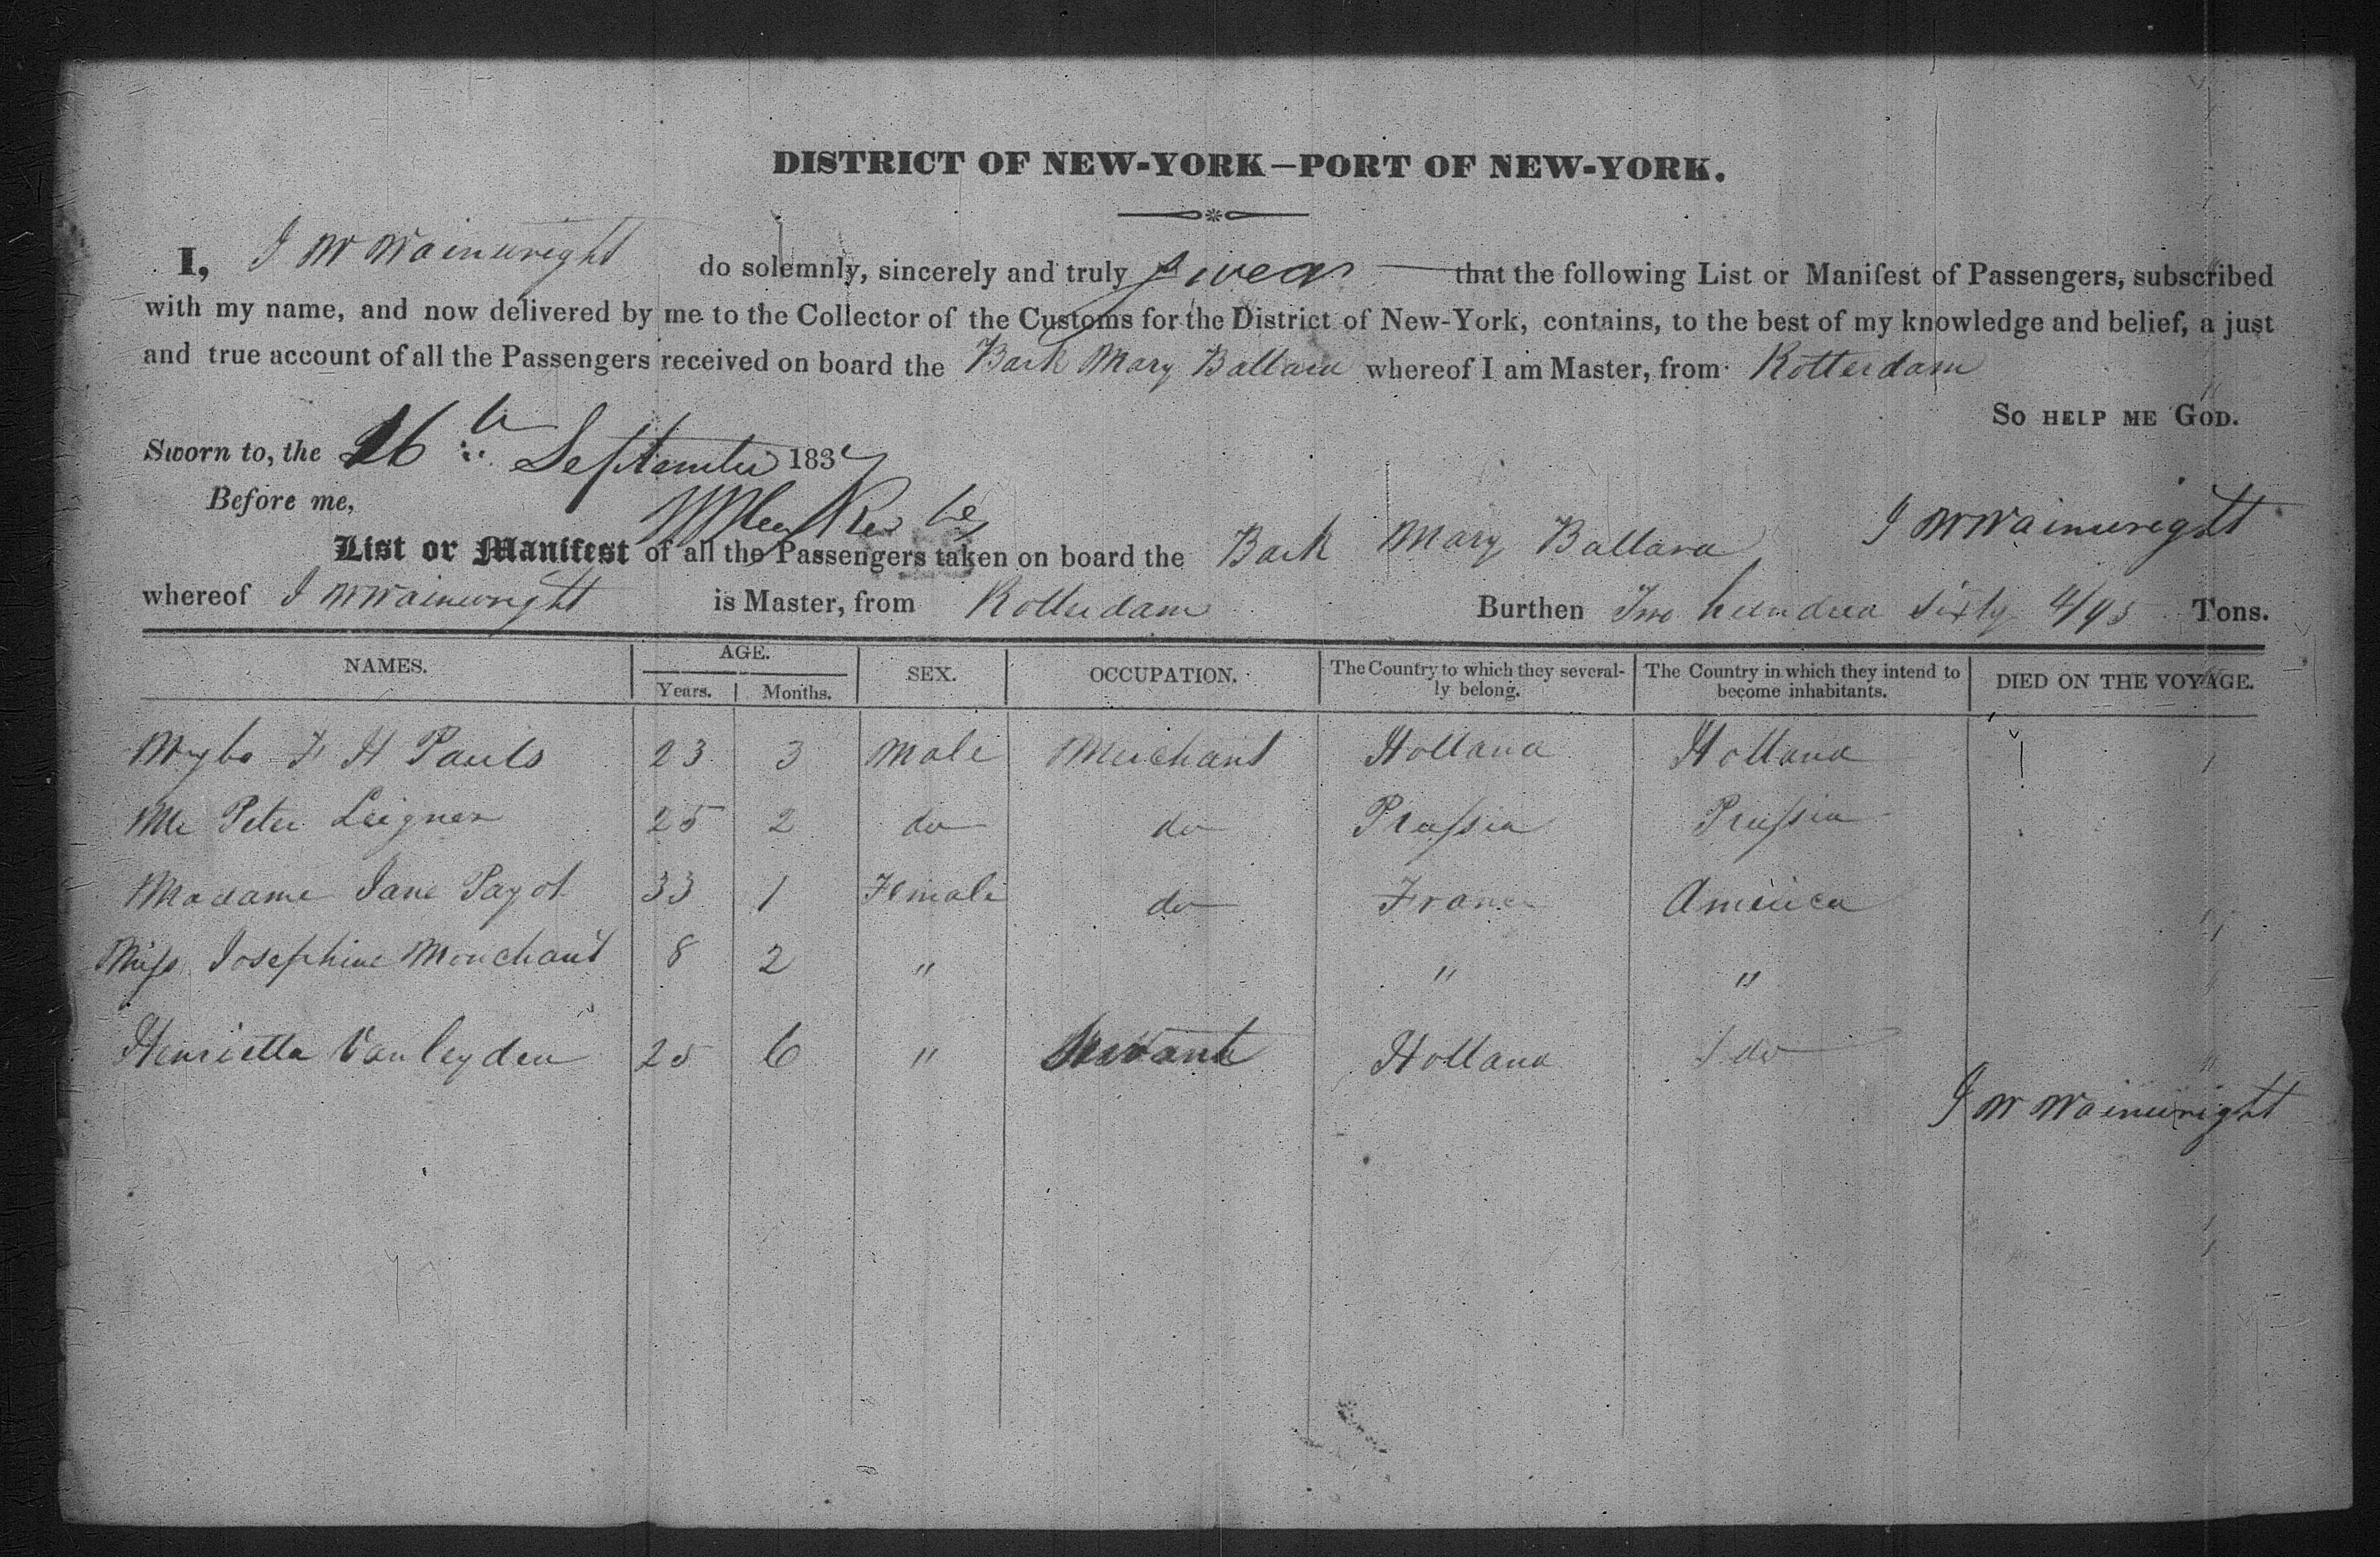 DISTRICT OF NEW-YORK—PORT OF NEW-YORK.
I, J W Wainwright do solemnly, sincerely and truly swear that the following List or Manifest of Passengers, subscribed
with my name, and now delivered by me to the Collector of the Customs for the District of New-York, contains, to the best of my knowledge and belief, a just
and true account of all the Passengers received on board the Bark Mary Ballard whereof I am Master, from Rotterdam
So help me God.
Sworn to, the 26th September 1837
Before me,
J W Wainwright
List or Manifest of all the Passengers taken on board the Bark Mary Ballard
whereof J W Wainwright is Master, from Rotterdam Burthen Two hundred sixty 4/95 Tons.
NAMES. AGE. Years. Months. SEX. OCCUPATION. The Country to which they severally belong. The Country in which they intend to become inhabitants. DIED ON THE VOYAGE.
F H Pauls 23 3 Male Merchant Holland Holland
Mr Peter Leigner 25 2 do do Prussia Prussia
Madame Jane Payot 33 1 Female do France America
Miss Josephine Monchant 8 2 " " "
Henrietta Vanleyden 25 6 " Servant Holland do
J W Wainwright